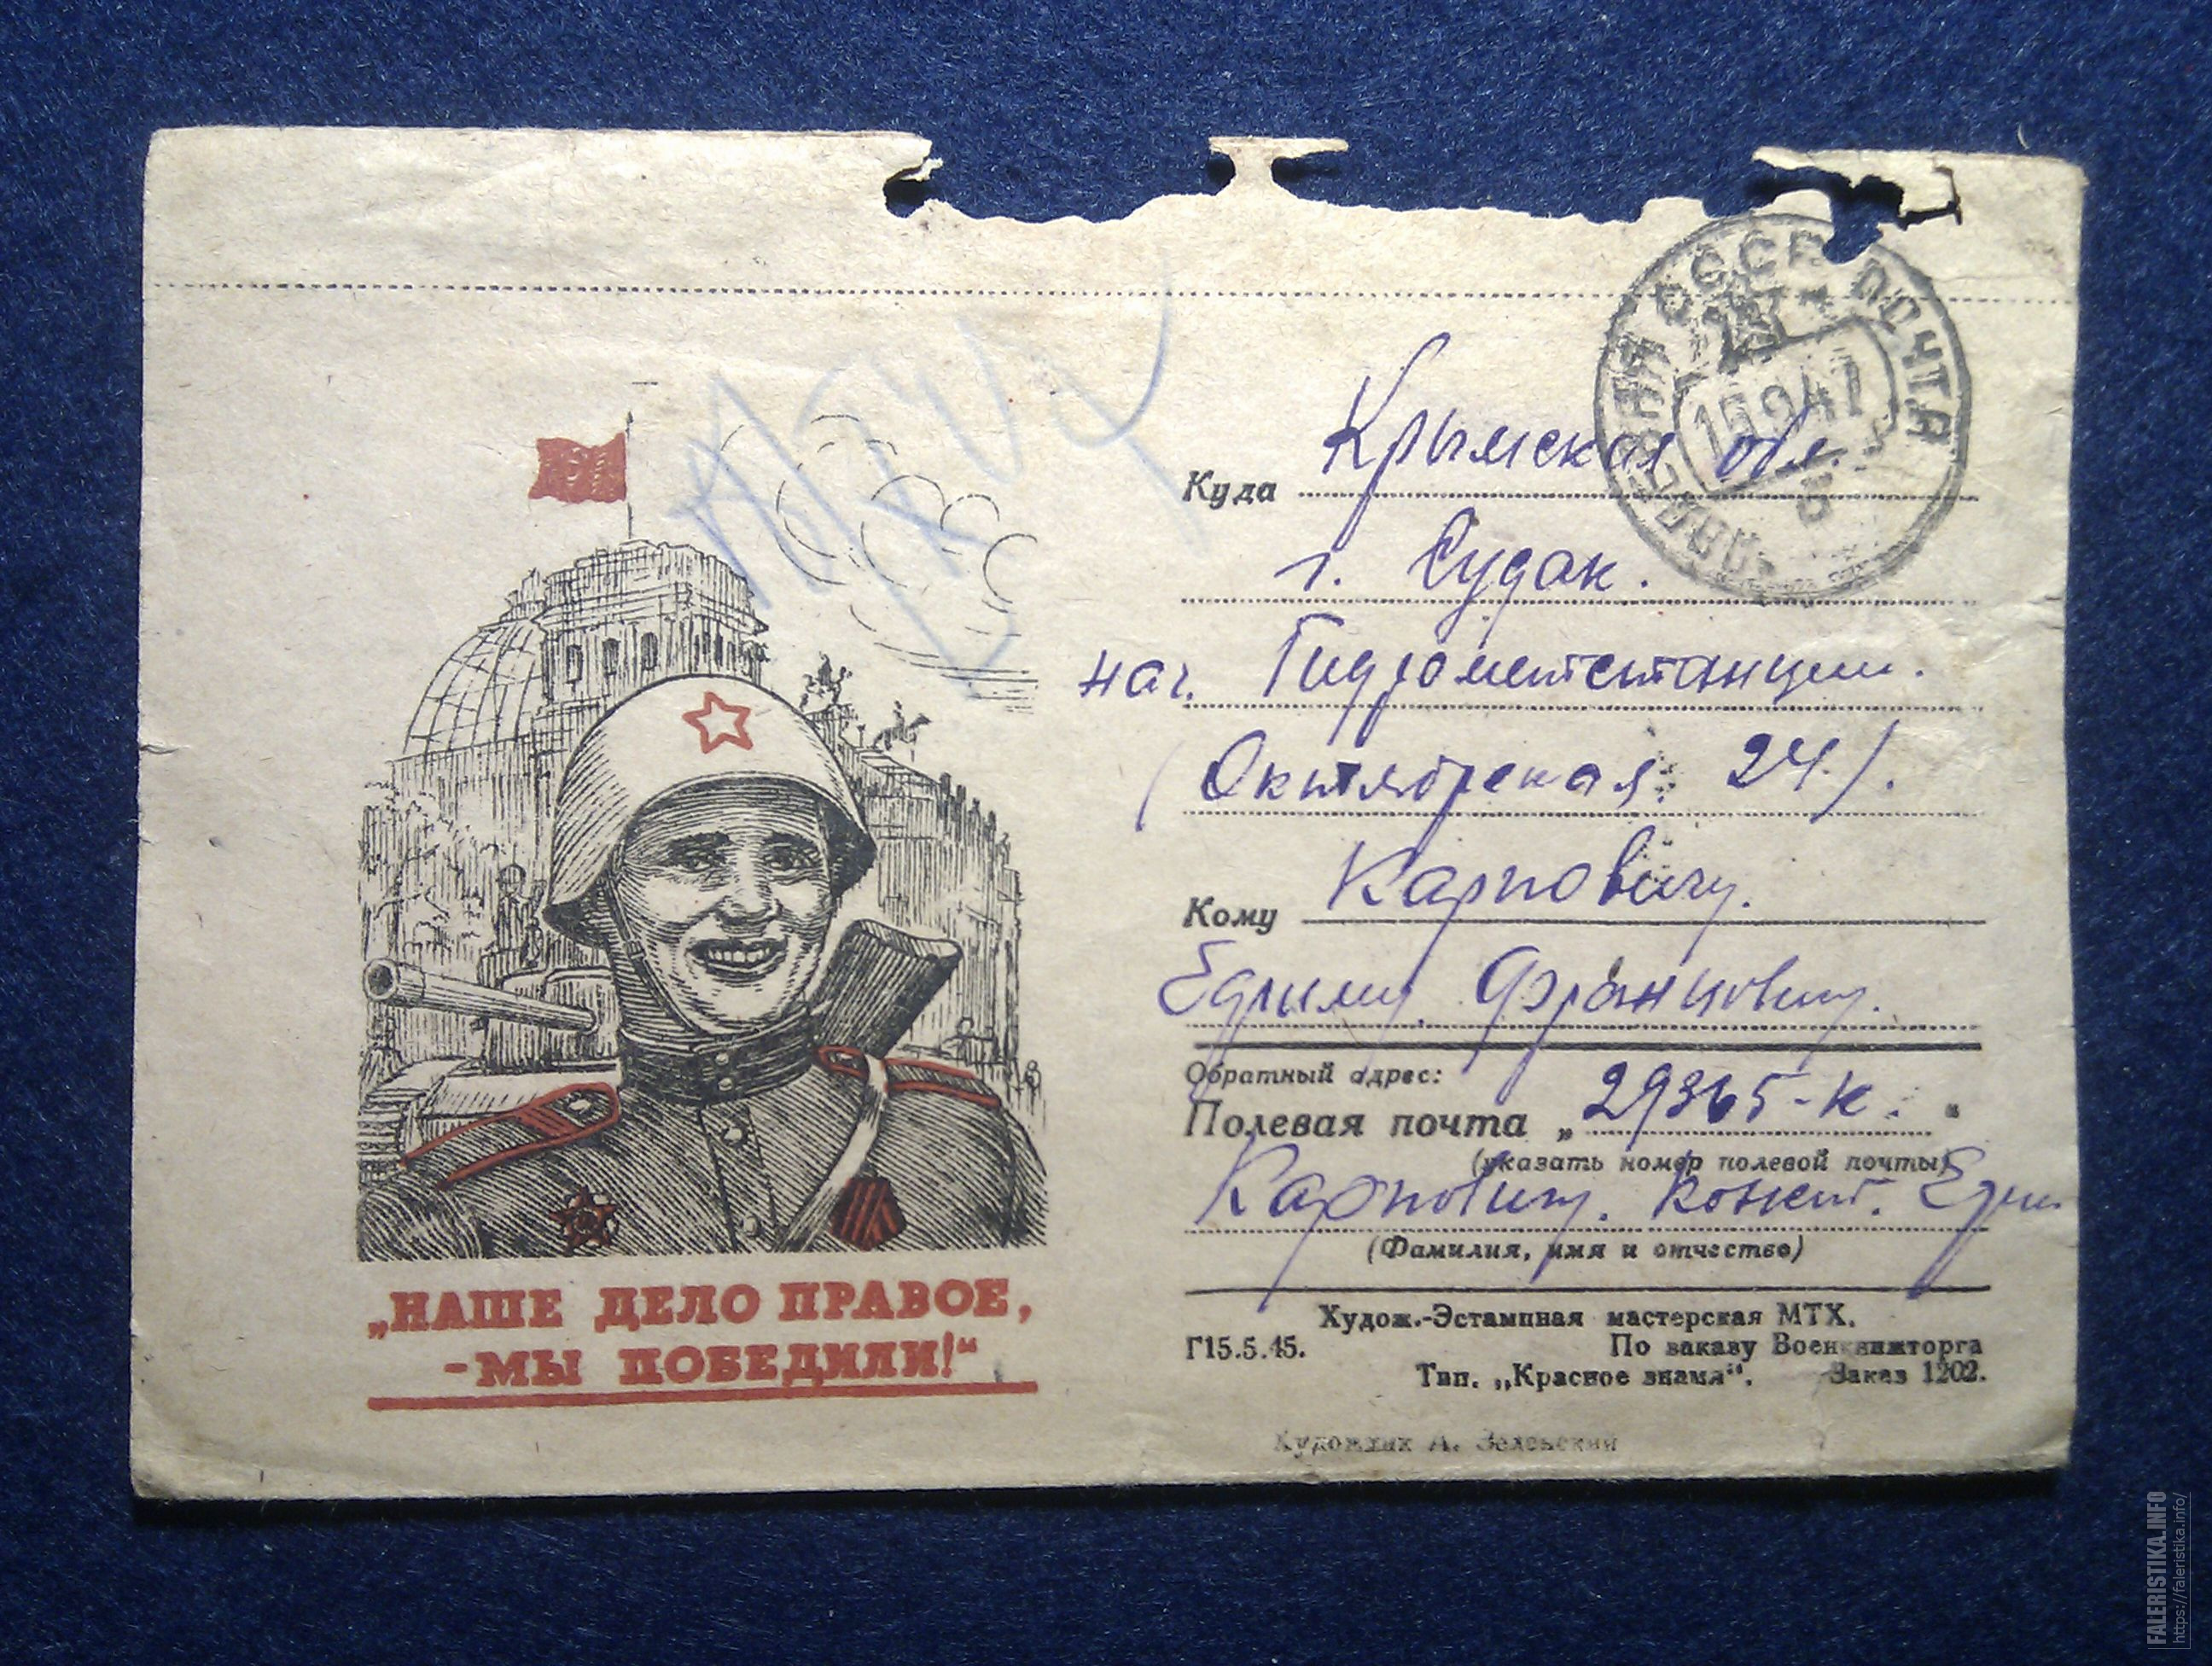 СССР ПОЧТА
15 9 47
Куда Крымская обл.
г. Судак.
нач. Гидрометстанции.
(Октябрьская 24/.
Кому Карповичу.
Францовичу.
Обратный адрес:
Полевая почта „29365-к. "
(указать номер полевой почты)
Карпович. Конст.
(Фамилия, имя и отчество)
„НАШЕ ДЕЛО ПРАВОЕ,
-МЫ ПОБЕДИЛИ!“
Худож.-Эстампная мастерская МТХ.
Г15.5.45. По заказу Военкнижторга
Тип. „Красное знамя“. Заказ 1202.
Художник А. Зеленский
FALERISTIKA.INFO
https://faleristika.info/